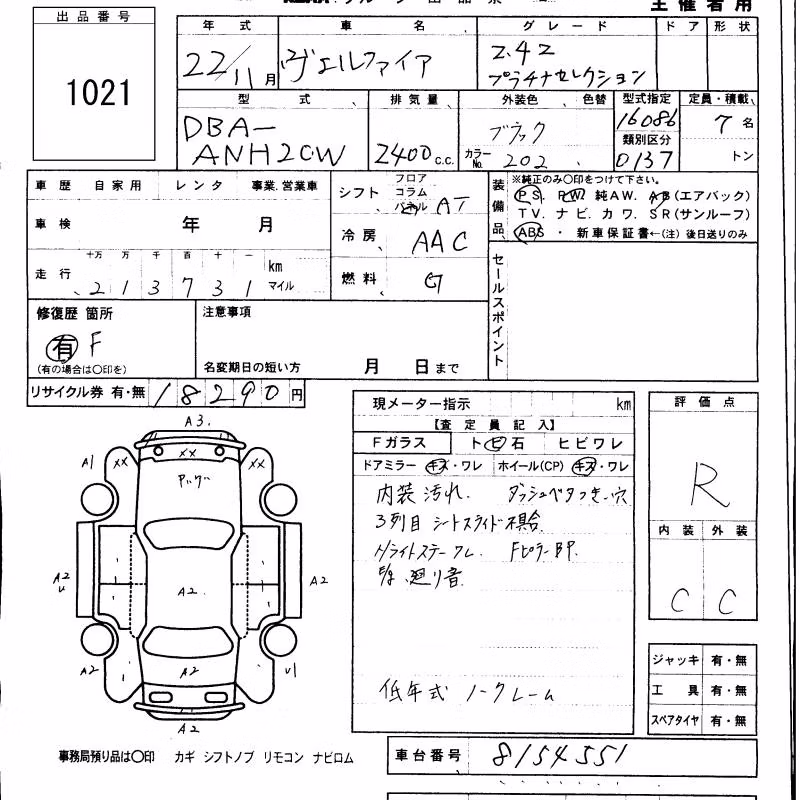 主催者用
出品番号
1021
年式 車名 グレード ドア 形状
22/11月 ヴェルファイア 2.4Z
プラチナセレクション
型式 排気量 外装色 色替 型式指定 定員・積載
DBA-
ANH20W 2400c.c. ブラック 16086 7名
カラーNo. 202 類別区分 0137 トン
車歴 自家用 レンタ 事業.営業車
車検 年 月
走行 十万 万 千 百 十 一
213731 km マイル
シフト フロア コラム パネル AT
冷房 AAC
燃料 G
装備品 ※純正のみ〇印をつけて下さい。
PS. PW. 純AW. AB(エアバック)
TV. ナビ. カワ. SR(サンルーフ)
ABS ・ 新車保証書←(注) 後日送りのみ
セールスポイント
修復歴 箇所
有 F
(有の場合は〇印を)
注意事項
名変期日の短い方 月 日まで
リサイクル券 有・無 18290円
現メーター指示 km
【査定員記入】
Fガラス トビ石 ヒビワレ
ドアミラー キズ・ワレ ホイール(CP) キズ・ワレ
内装 汚れ. ダッシュベタつき.穴
3列目 シートスライド不具合
Hライトステー ワレ. Fピラー BP.
廻り音
低年式 ノークレーム
評価点
R
内装 外装
C C
ジャッキ 有・無
工具 有・無
スペアタイヤ 有・無
A3.
A1 XX XX XX
A2 A2. A2
A2 A2 U1
A2
事務局預り品は〇印 カギ シフトノブ リモコン ナビロム
車台番号 8154551